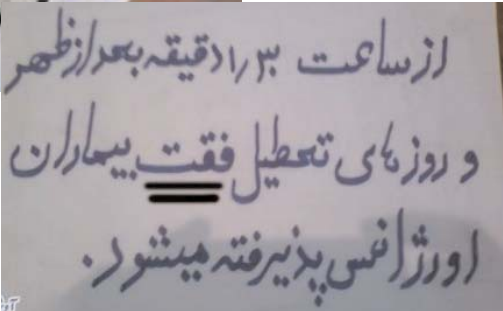 از ساعت ۱٫۳۰ دقیقه بعدازظهر
و روزهای تحطیل فقت بیماران
اورژانس پذیرفته میشود.